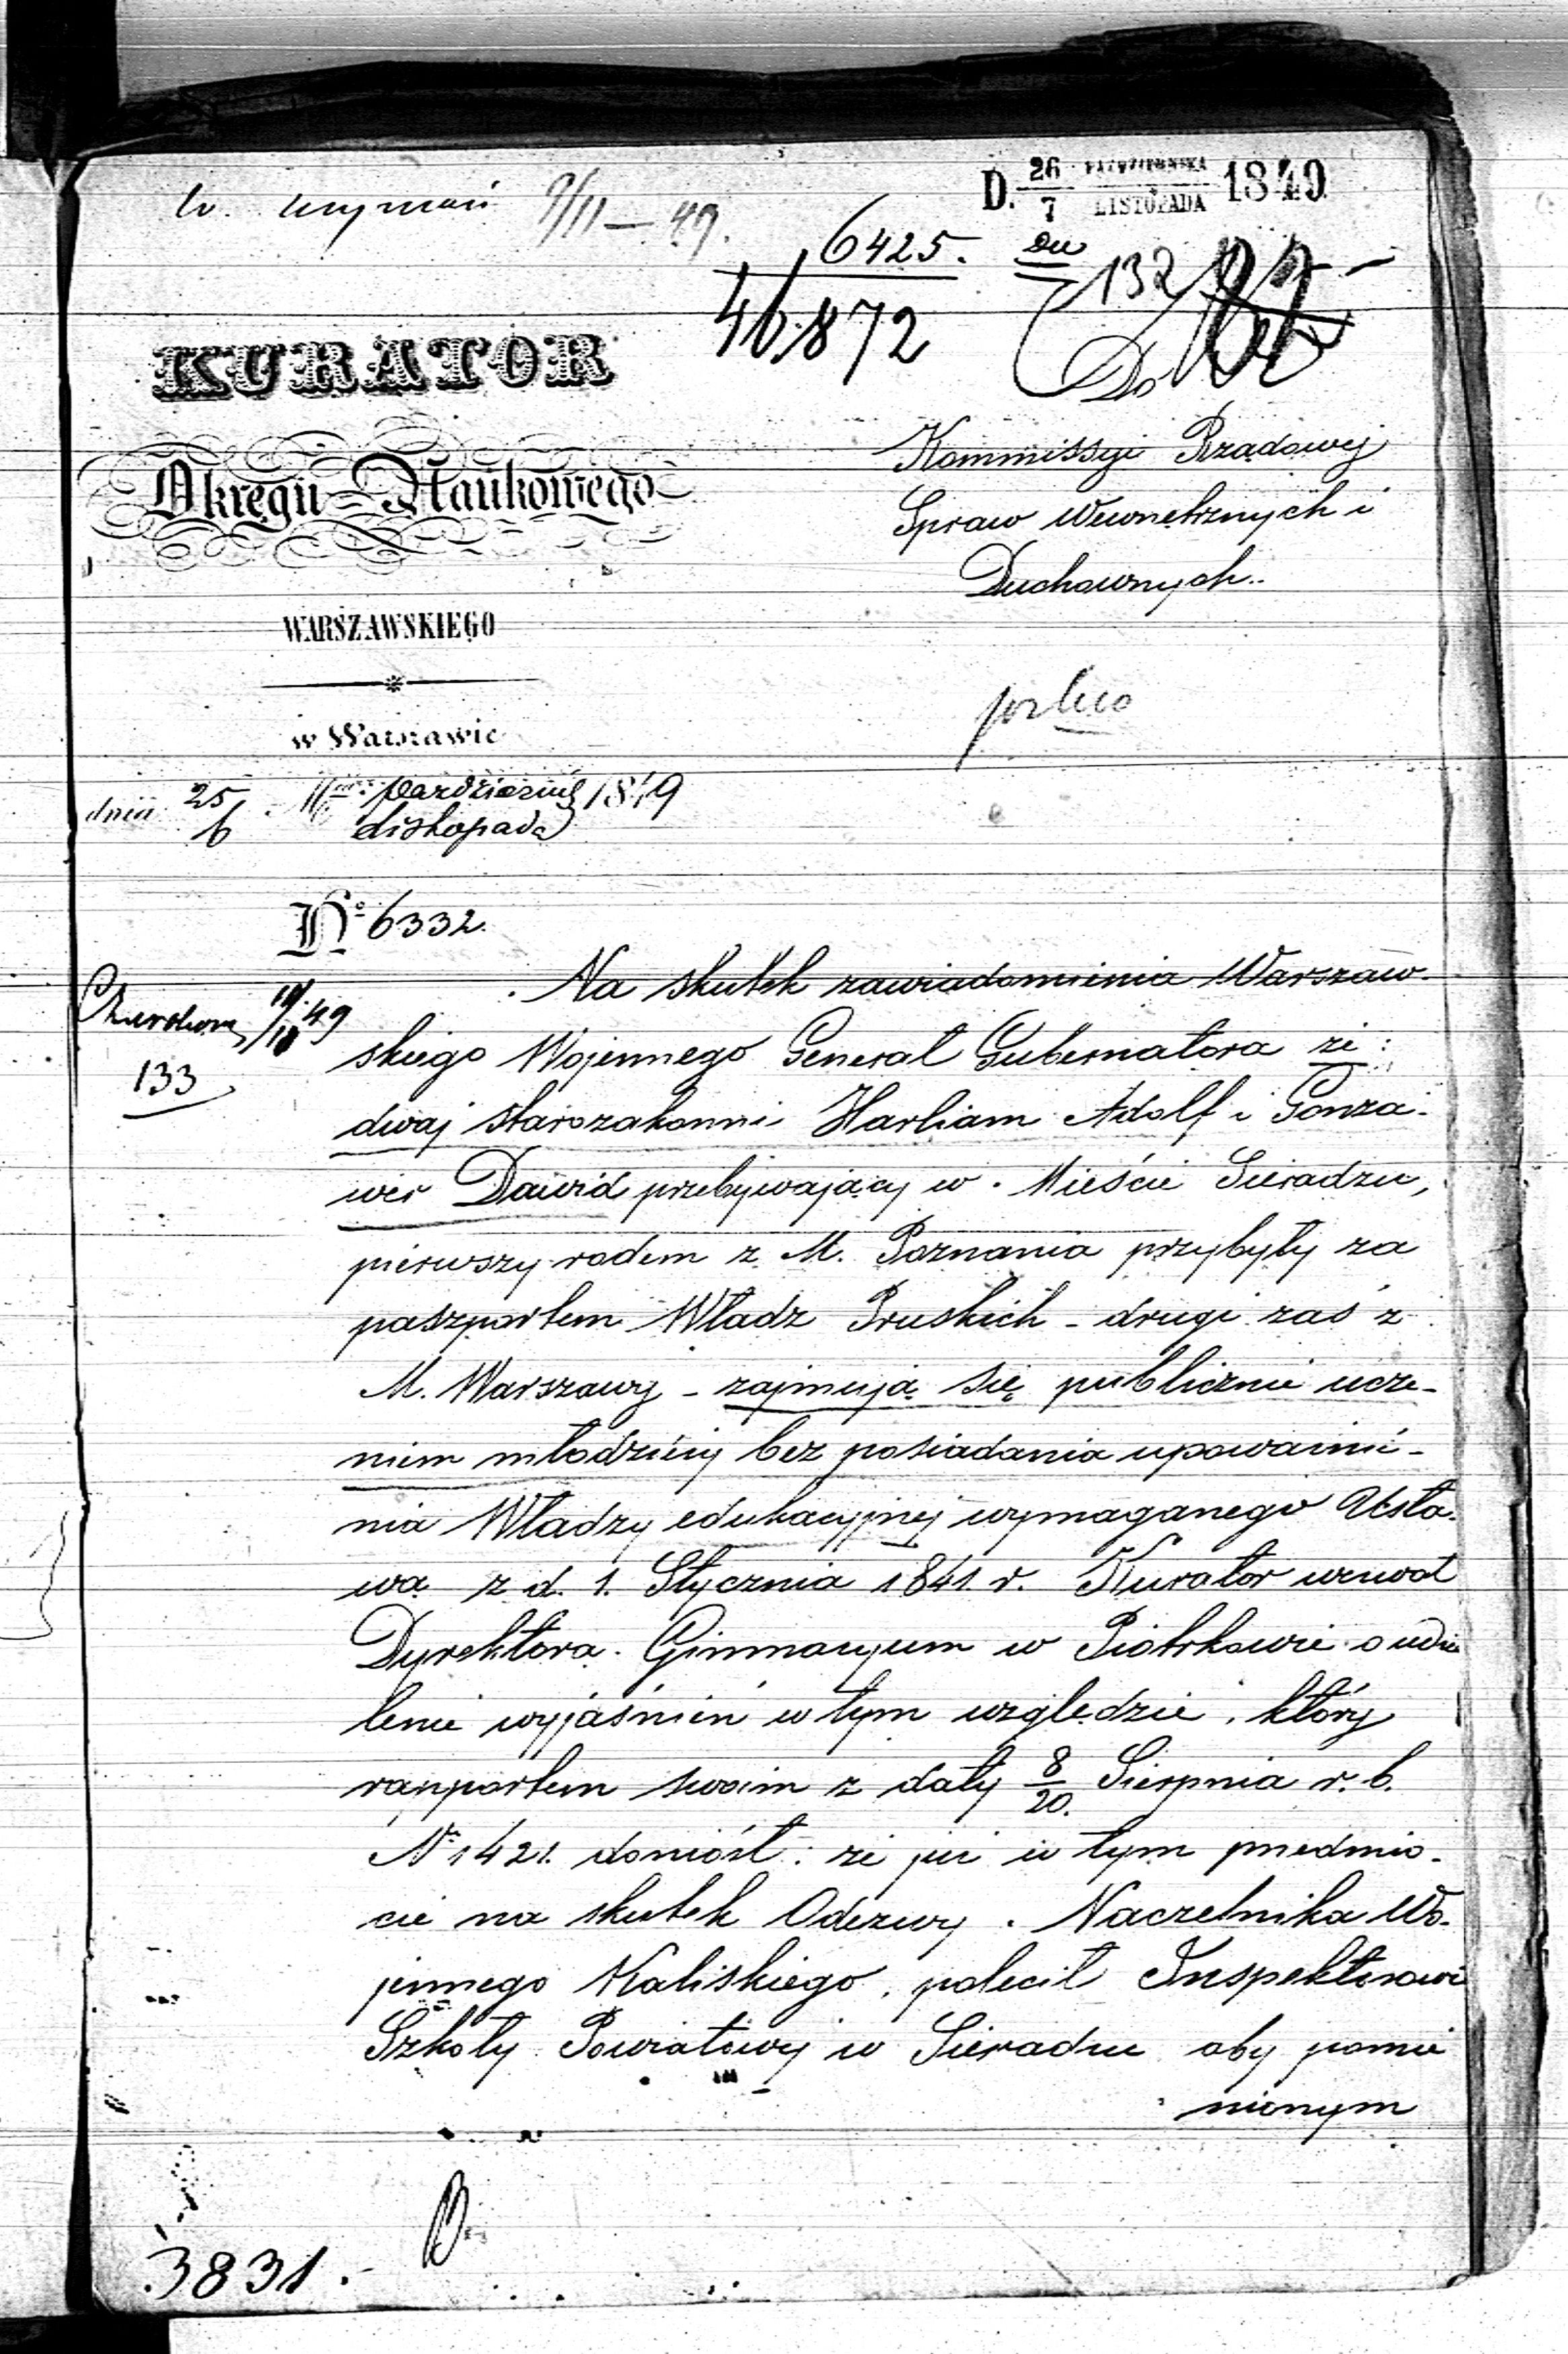 D. 26/7 PAŹDZIERNIKA LISTOPADA 1849
9/11 — 49.
6425.
46872
132
Do
KURATOR
Okręgu Naukowego
WARSZAWSKIEGO
w Warszawie
dnia 25/6 Października Listopada 1849
Kommissyi Rządowej
Spraw Wewnętrznych i
Duchownych.
No 6332.
133
Na skutek zawiadomienia Warszaw-
skiego Wojennego Generał Gubernatora że:
dwaj starozakonni Harliam Adolf i Gonza-
wer Dawid przebywający w Mieście Sieradzu,
pierwszy rodem z M. Poznania przybyły za
paszportem Władz Pruskich - drugi zaś z
M. Warszawy - zajmują się publicznie ucze-
niem młodzieży bez posiadania upoważnie-
nia Władzy edukacyjnej wymaganego Usta-
wą z d. 1. Stycznia 1841. r. Kurator wezwał
Dyrektora Gimnazyum w Piotrkowie o udzie
lenie wyjaśnień w tym względzie, który
rapportem swoim z daty 8/20. Sierpnia r. b.
No 1421. doniósł: że już w tym przedmio-
cie na skutek Odezwy Naczelnika Wo-
jennego Kaliskiego, polecił Inspektorowi
Szkoły Powiatowej w Sieradzu aby pomie
nionym
3831.